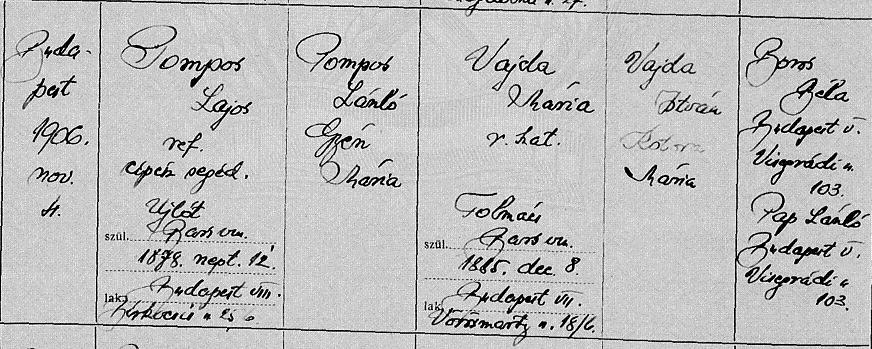 Buda-
pest
1906.
nov.
4.
Pompos
Lajos
ref.
cipész segéd.
Ujlót
szül. Bars vm.
1878. sept. 12.
lak. Budapest VIII.
Pompos
László
Gyén
Mária
Vajda
Mária
r. kat.
Tolmács
szül. Bars vm.
1885. dec. 8.
lak. Budapest VII.
Vörösmarty u. 18/b.
Vajda
István
Mária
Boros
Béla
Budapest V.
Visegrádi u.
103.
Pap László
Budapest V.
Visegrádi u
103.